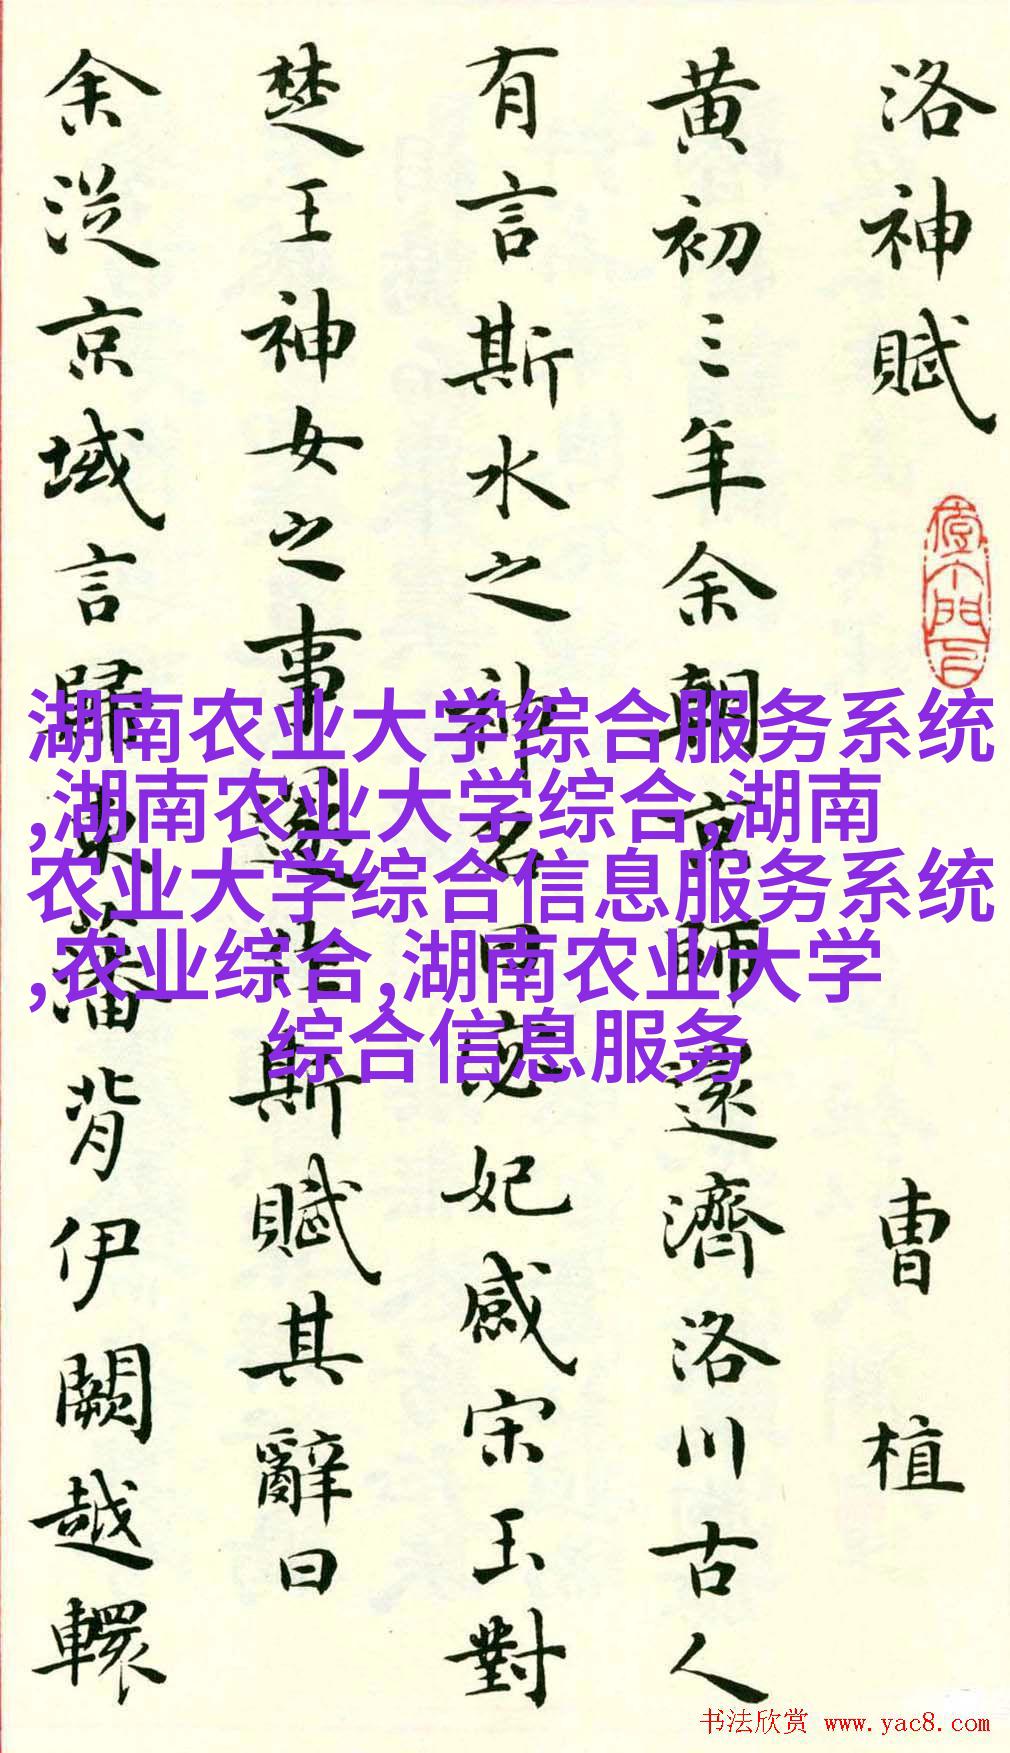 洛神賦
曹植
黄初三年余朝京師還濟洛川古人
有言斯水之神名曰宓妃感宋玉對
楚王神女之事遂作斯賦其辭曰
余從京域言歸東藩背伊闕越轘
湖南农业大学综合服务系统
,湖南农业大学综合,湖南
农业大学综合信息服务系统
,农业综合,湖南农业大学
综合信息服务
书法欣赏 www.yac8.com